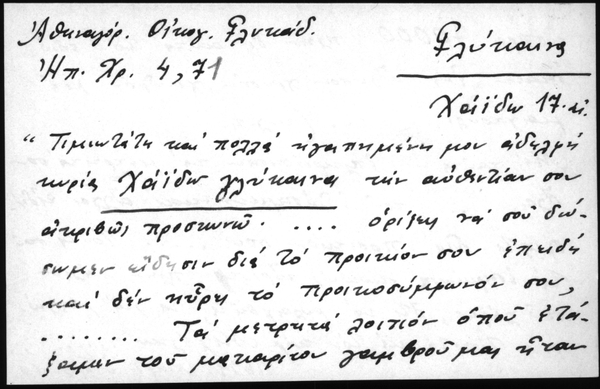 Ἀθηναγόρ. Οἰκογ. Γλυκάδ.
Ἠπ. Χρ. 4, 71
Γλύκαινα
Χάϊδω 17. αἰ.
"Τιμιωτάτη καί πολλά ἠγαπημένη μου ἀδελφή
κυρία Χάϊδω γλύκαινα τήν αὐθεντίαν σου
ἀκριβῶς προσκυνῶ. .... ὁρίζεις νά σοῦ δώ-
σωμεν εἴδησιν διά τό προικιόν σου ἐπειδή
καί δέν ηὗρες τό προικοσύμφωνόν σου,
........ Τά μετρητά λοιπόν ὁπού ἐτά-
ξαμεν τοῦ μακαρίτου γαμβροῦ μας ἦταν